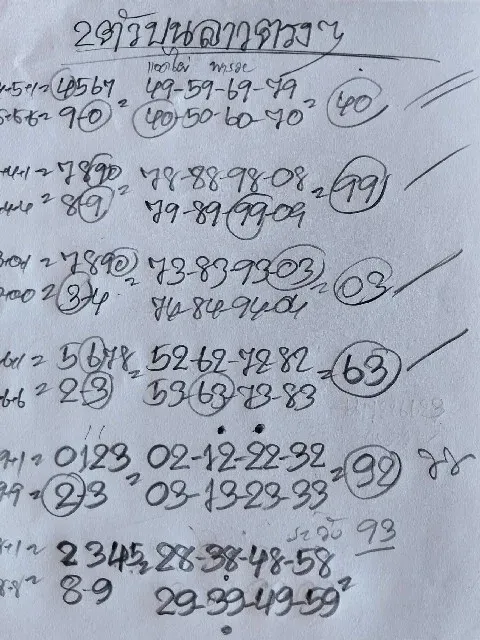 2ตัวบนลาวตรงๆ
4+5+1= 4567 49-59-69-79
9-0 = 40-50-60-70 = 40
4+1= 7890 78-88-98-08
8-9 = 79-89-99-09 = 99
7890 73-83-93-03
3-4 = 74-84-94-04 = 03
6+1= 5678 52-62-72-82
2-3 = 53-63-73-83 = 63
9+1= 0123 02-12-22-32
2-3 = 03-13-23-33 = 92
ระวัง 93
2345 28-38-48-58
8-9 = 29-39-49-59 =